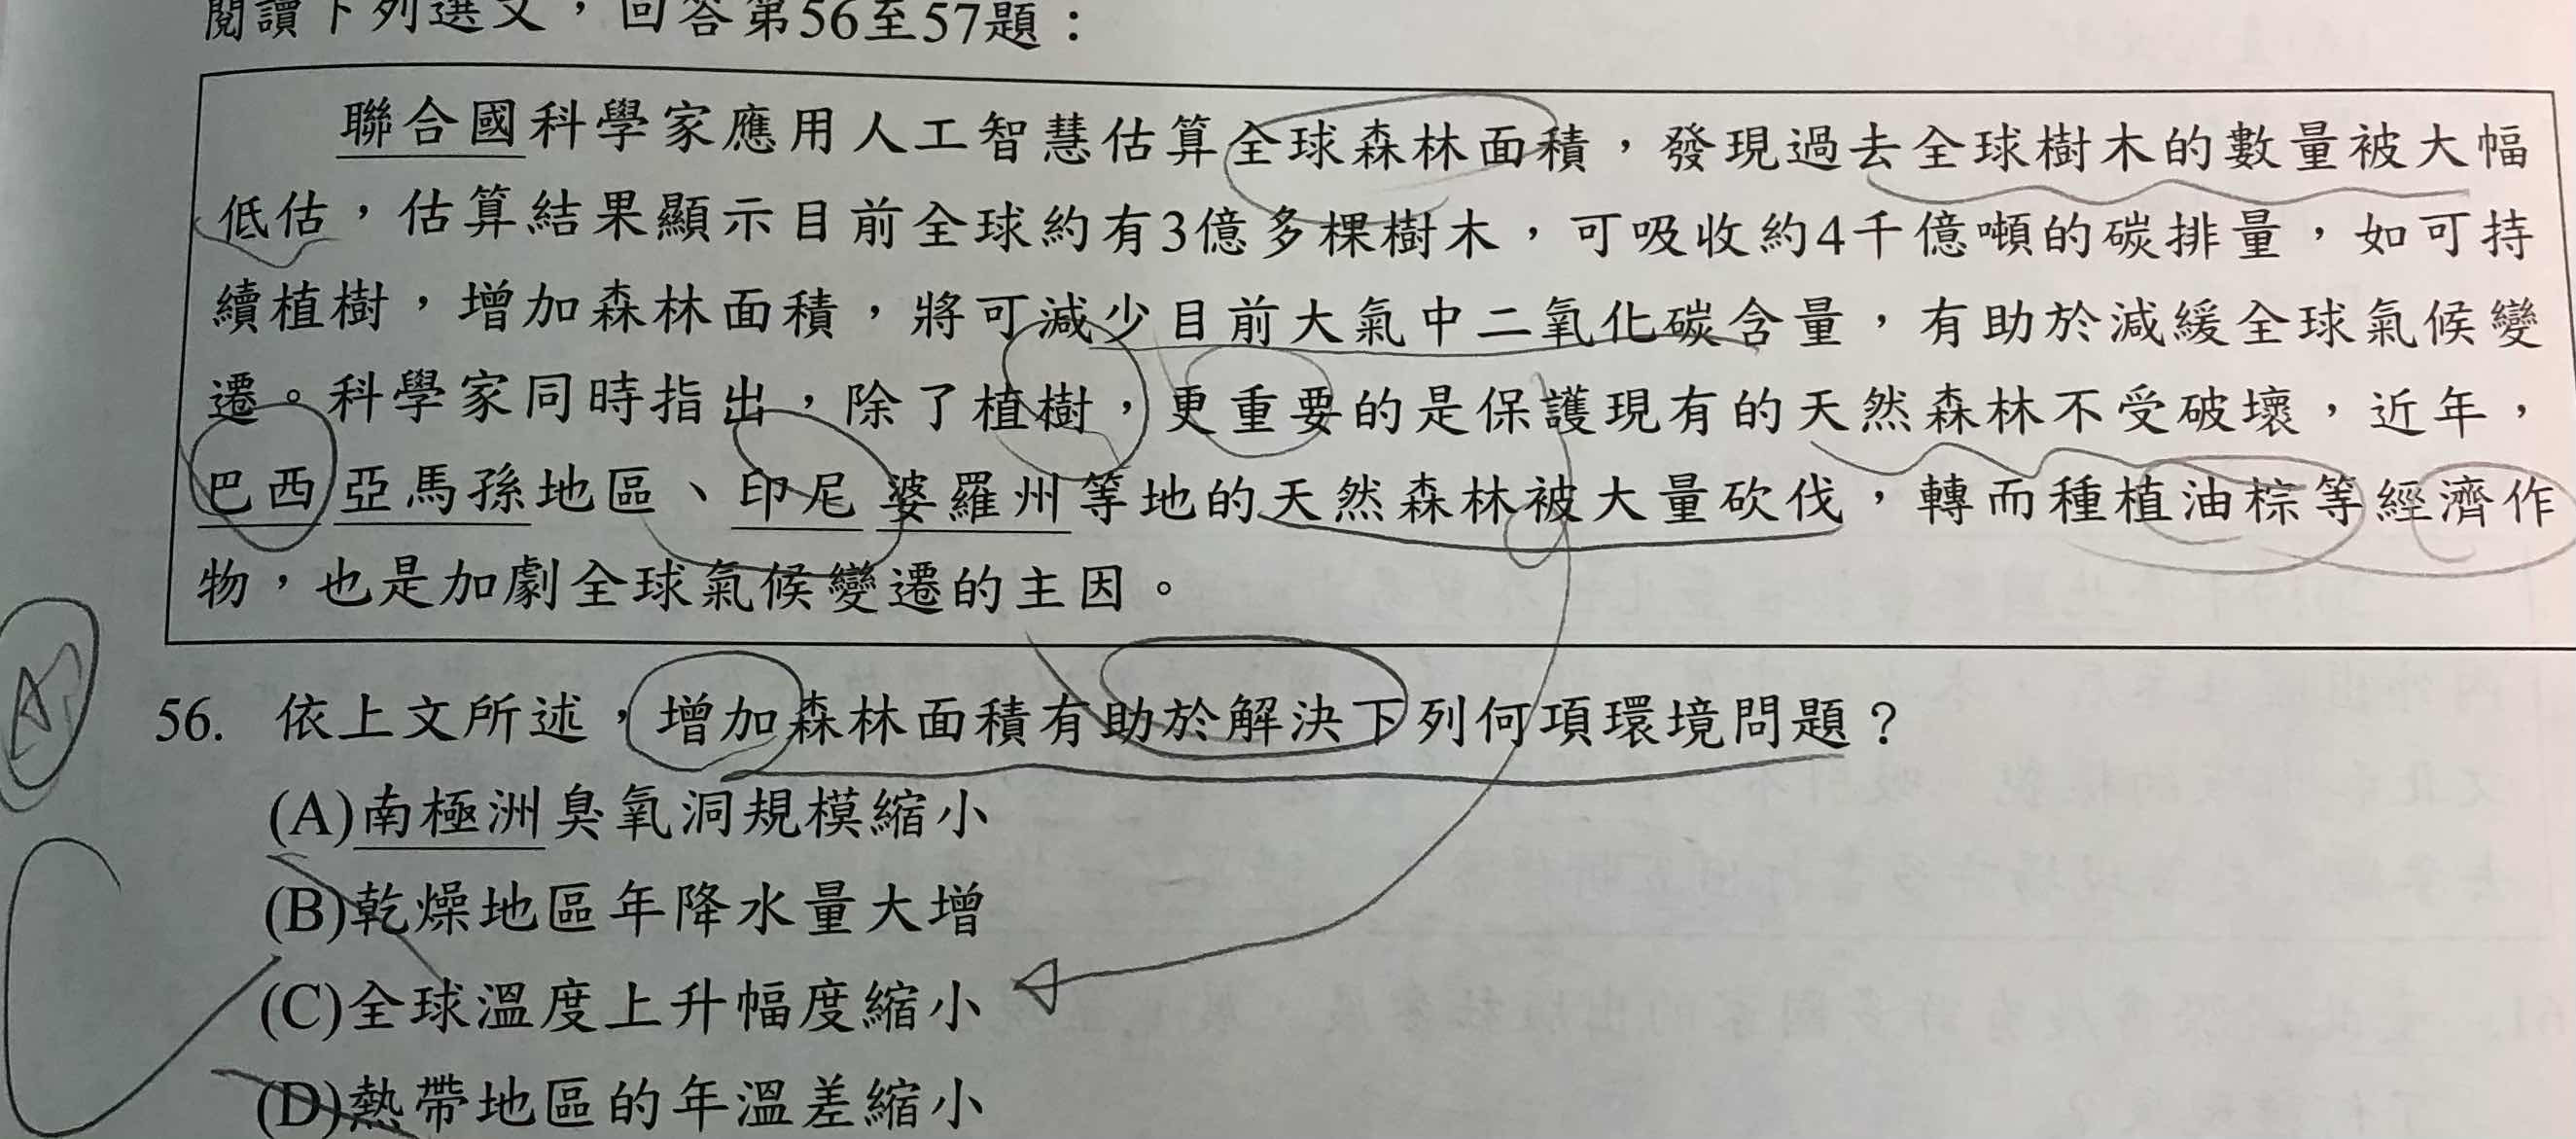 閱讀下列選文，回答第56至57題：
聯合國科學家應用人工智慧估算全球森林面積，發現過去全球樹木的數量被大幅
低估，估算結果顯示目前全球約有3億多棵樹木，可吸收約4千億噸的碳排量，如可持
續植樹，增加森林面積，將可減少目前大氣中二氧化碳含量，有助於減緩全球氣候變
遷。科學家同時指出，除了植樹，更重要的是保護現有的天然森林不受破壞，近年，
巴西亞馬孫地區、印尼婆羅州等地的天然森林被大量砍伐，轉而種植油棕等經濟作
物，也是加劇全球氣候變遷的主因。
56. 依上文所述，增加森林面積有助於解決下列何項環境問題？
(A)南極洲臭氧洞規模縮小
(B)乾燥地區年降水量大增
(C)全球溫度上升幅度縮小
(D)熱帶地區的年溫差縮小